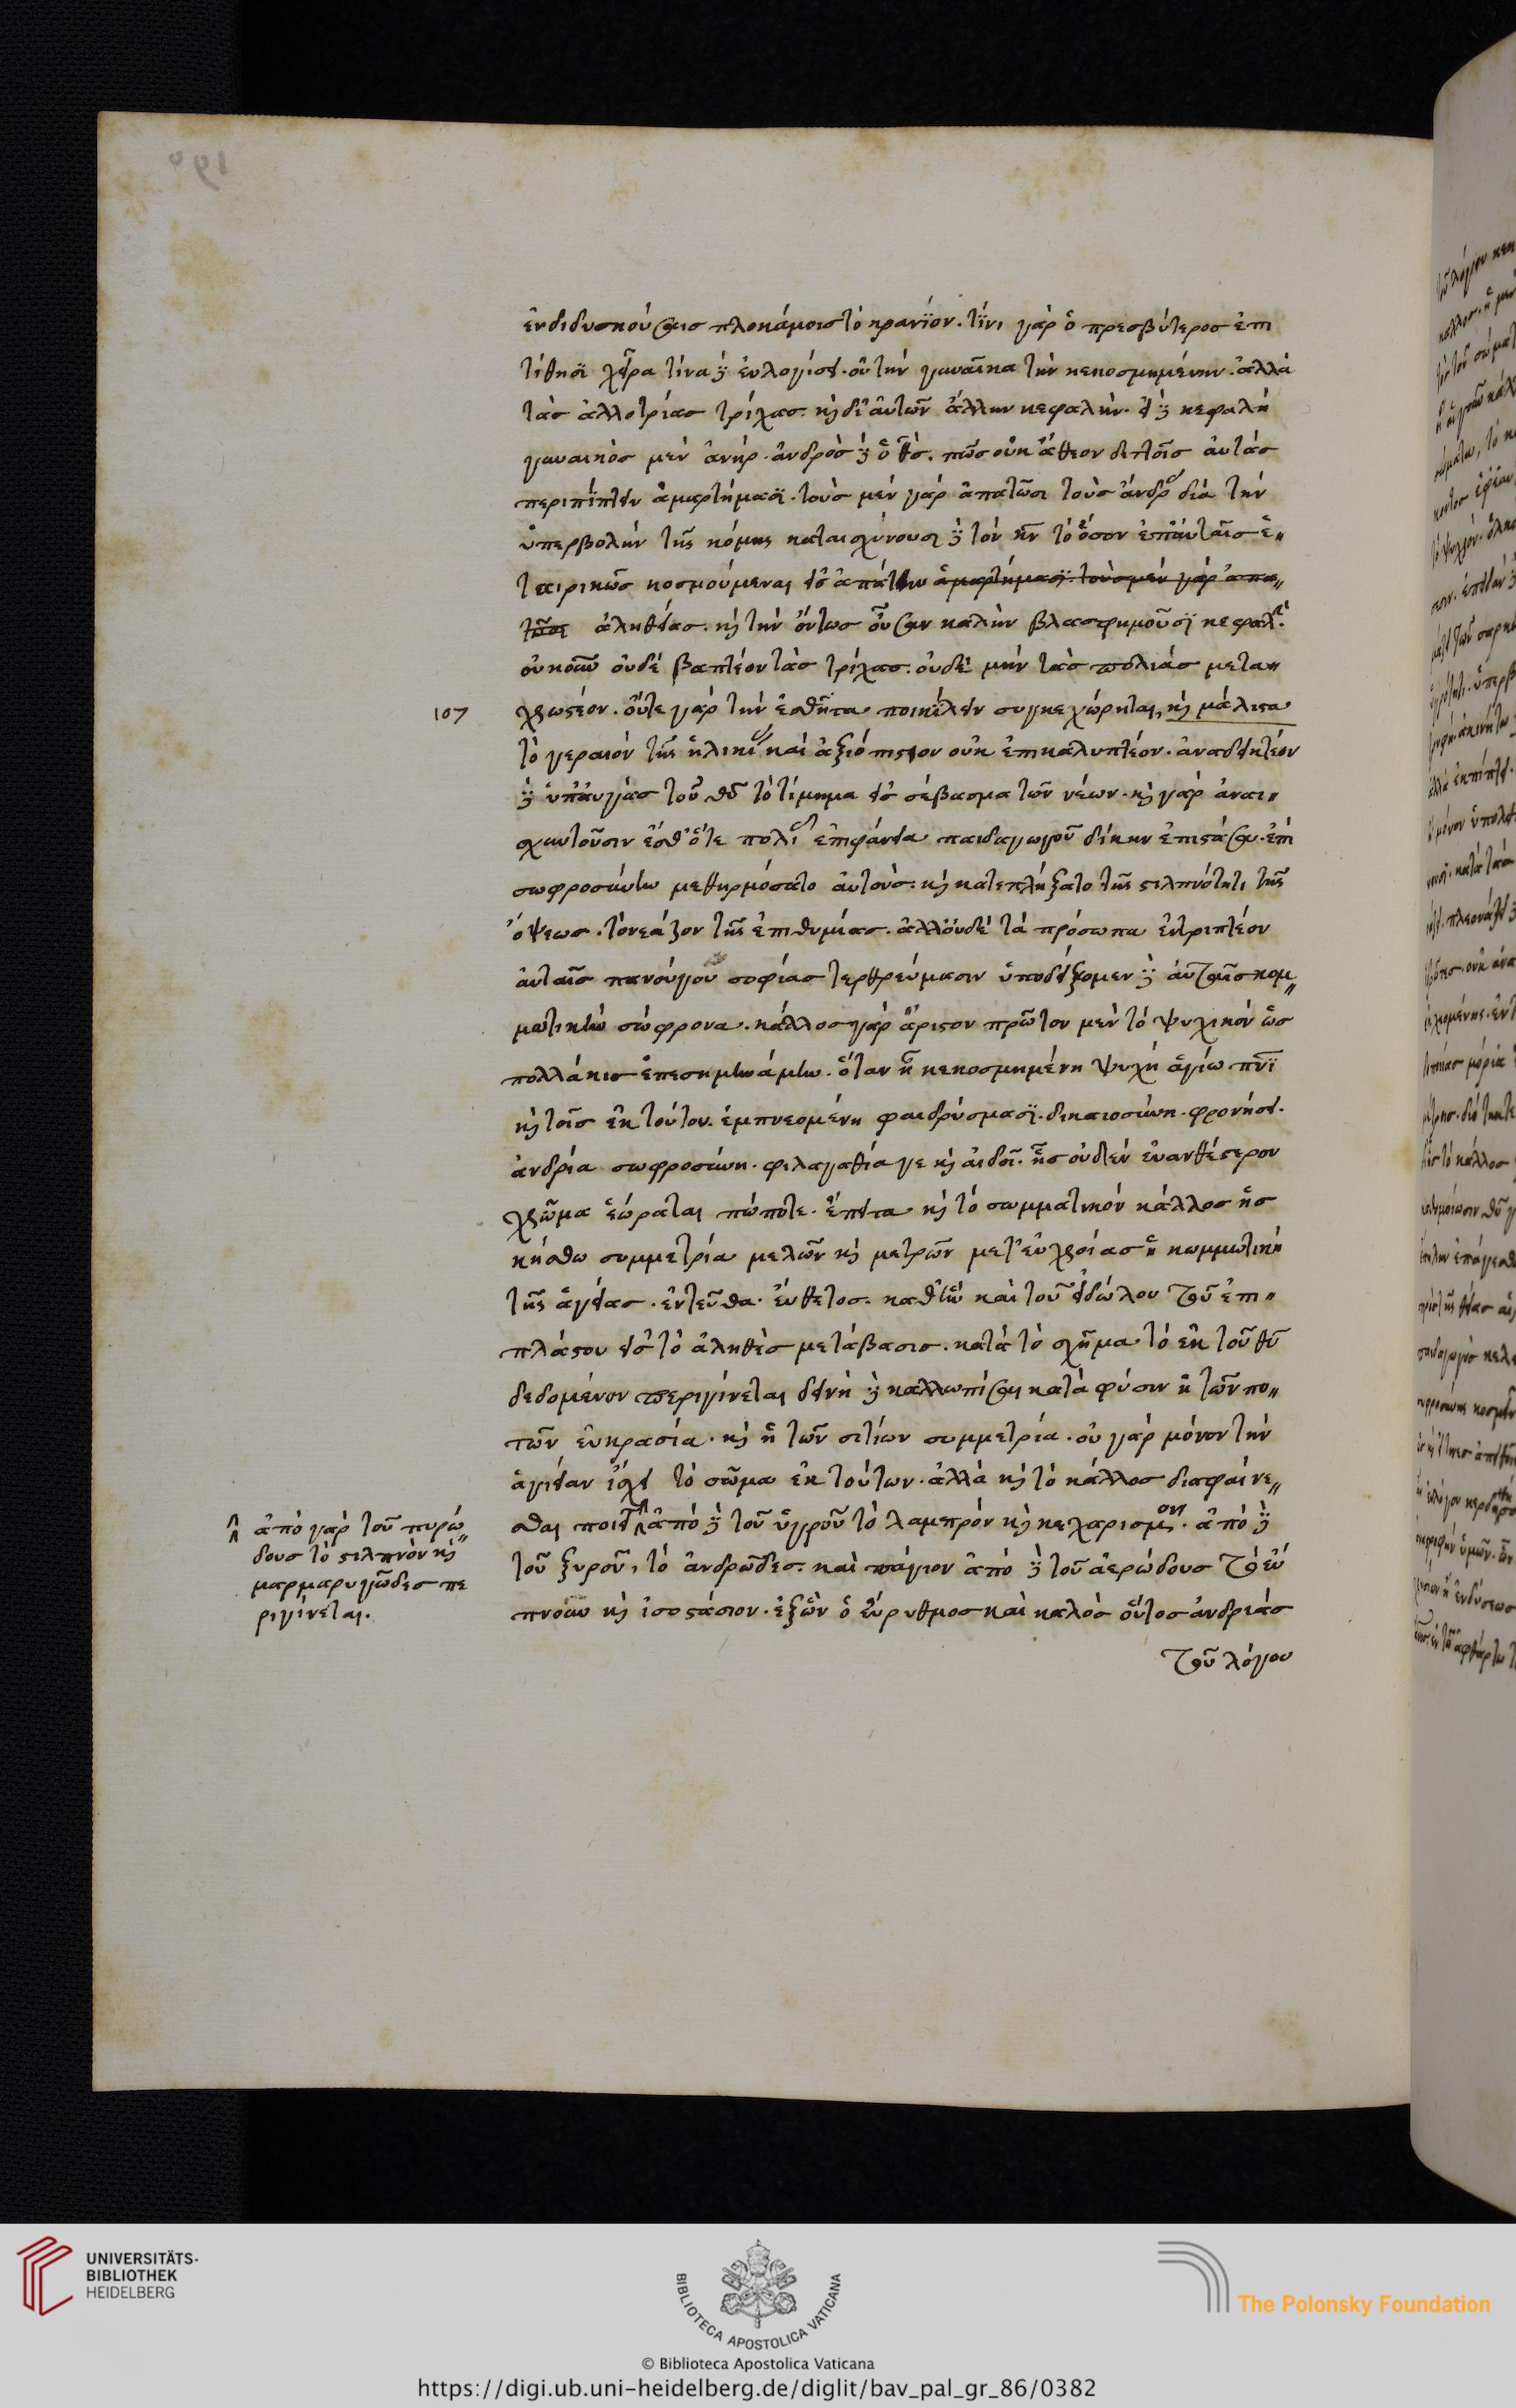 ἐνδιδυσκούσαις πλοκάμοις τὸ κρανίον. τίνι γὰρ ὁ πρεσβύτερος ἐπι
τίθησι χεῖρα τίνα δὲ εὐλογήσει. οὐ τὴν γυναῖκα τὴν κεκοσμημένην. ἀλλὰ
τὰς ἀλλοτρίας τρίχας. καὶ δι' αὐτῶν ἄλλην κεφαλήν. εἰ δὲ κεφαλὴ
γυναικὸς μὲν ἀνήρ. ἀνδρὸς δὲ ὁ χς. πῶς οὐκ ἄθεον διττοῖς αὐτὰς
περιπίπτειν ἁμαρτήμασι. τοὺς μὲν γὰρ ἀπατῶσι τοὺς ἄνδρας διὰ τὴν
ὑπερβολὴν τῆς κόμης καταισχύνουσι δὲ τὸν κν τὸ ὅσον ἐπ' αὐταῖς ἑ-
ταιρικῶς κοσμούμεναι εἰς ἀπάτην ἁμαρτήμασι. τοὺς μὲν γὰρ ἀπα-
τῶσι ἀληθείας. καὶ τὴν ὄντως οὖσαν καλὴν βλασφημοῦσι κεφαλήν.
οὔκουν οὐδὲ βαπτέον τὰς τρίχας. οὐδὲ μὴν τὰς πολιὰς μετα-
107
χρωστέον. οὔτε γὰρ τὴν ἐσθῆτα ποικίλλειν συγκεχώρηται, καὶ μάλιστα
τὸ γεραιὸν τῆς ἡλικίας καὶ ἀξιόπιστον οὐκ ἐπικαλυπτέον. ἀναδεικτέον
δὲ ὑπ' αὐγὰς τοῦ θῦ τὸ τίμημα εἰς σέβασμα τῶν νέων. καὶ γὰρ ἀναι-
σχυντοῦσιν ἔσθ' ὅτε πολιᾶς ἐπιφάνεια παιδαγωγοῦ δίκην ἐπιστᾶσα. ἐπὶ
σωφροσύνην μεθηρμόσατο αὐτούς. καὶ κατεπλήξατο τῆς στιλπνότητι τῆς
ὄψεως. τὸ νεάζον τῆς ἐπιθυμίας. ἀλλ' οὐδὲ τὰ πρόσωπα ἐντριπτέον
αὐταῖς πανούργου σοφίας τερθρεύμασιν ὑποδείξομεν δὲ αὐταῖς κομ-
μωτικὴν σώφρονα. κάλλος γὰρ ἄριστον πρῶτον μὲν τὸ ψυχικὸν ὡς
πολλάκις ἐπεσημηνάμην. ὅταν ᾖ κεκοσμημένη ψυχὴ ἁγίω πνι
καὶ τοῖς ἐκ τούτου. ἐμπνεομένη φαιδρύσμασι. δικαιοσύνη. φρονήσει.
ἀνδρία σωφροσύνη. φιλαγαθία γε καὶ αἰδοῖ. ἧς οὐδὲν εὐανθέστερον
χρῶμα ἑώραται πώποτε. ἔπειτα καὶ τὸ σωμματικὸν κάλλος ἧς
κήσθω συμμετρία μελῶν καὶ μετρῶν μετ' εὐχροίας ἡ κομμωτικὴ
τῆς ὑγείας. ἐντεῦθα. εὔθετος. καθ' ἣν καὶ τοῦ εἰδώλου τοῦ ἐπι-
πλάστου εἰς τὸ ἀληθὲς μετάβασις. κατὰ τὸ σχῆμα τὸ ἐκ τοῦ θῦ
δεδομένον περιγίνεται δεινὴ δὲ καλλωπίσαι κατὰ φύσιν ἡ τῶν πο-
τῶν εὐκρασία. καὶ ἡ τῶν σιτίων συμμετρία. οὐ γὰρ μόνον τὴν
ὑγιείαν ἴσχει τὸ σῶμα ἐκ τούτων. ἀλλὰ καὶ τὸ κάλλος διαφαίνε-
σθαι ποιεῖ ἀπὸ δὲ τοῦ ὑγροῦ τὸ λαμπρὸν καὶ κεχαρισμένον. ἀπὸ δὲ
τοῦ ξυροῦ, τὸ ἀνδρῶδες. καὶ πάγιον ἀπὸ δὲ τοῦ ἀερώδους τὸ εὔ
πνοουν καὶ ἰσοστάσιον. ἐξ ὧν ὁ εὔρυθμος καὶ καλὸς οὗτος ἀνδριὰς
τοῦ λόγου
ἀπὸ γὰρ τοῦ πυρώ
δους τὸ στιλπνὸν καὶ
μαρμαρυγῶδες πε
ριγίνεται.
UNIVERSITÄTS-
BIBLIOTHEK
HEIDELBERG
BIBLIOTECA APOSTOLICA VATICANA
The Polonsky Foundation
© Biblioteca Apostolica Vaticana
https://digi.ub.uni-heidelberg.de/diglit/bav_pal_gr_86/0382